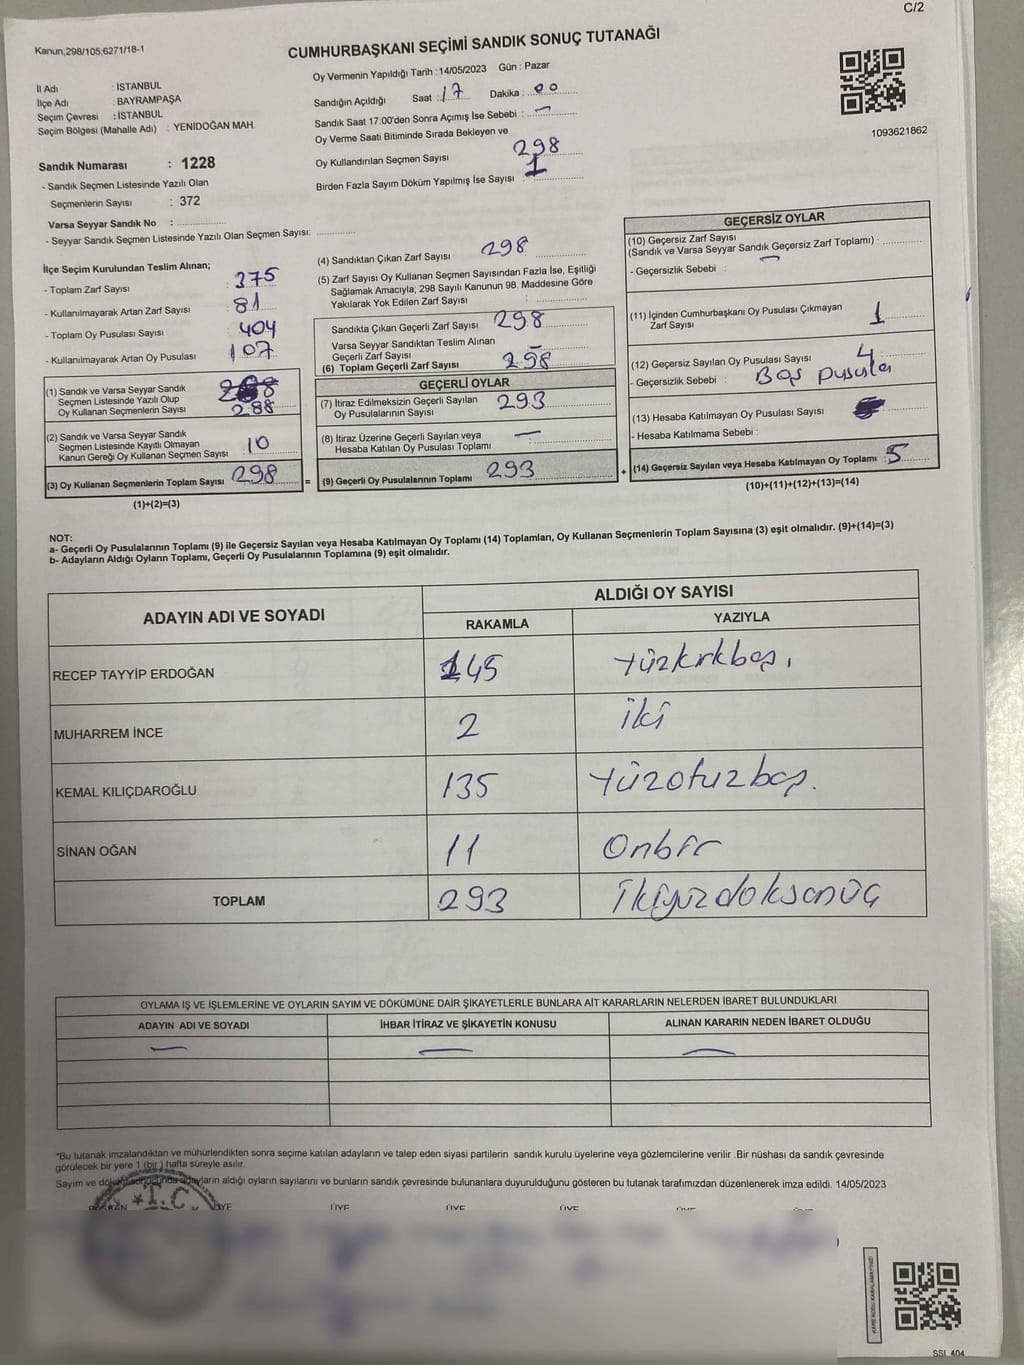 C/2
Kanun,298/105;6271/18-1
CUMHURBAŞKANI SEÇİMİ SANDIK SONUÇ TUTANAĞI
İl Adı : İSTANBUL
İlçe Adı : BAYRAMPAŞA
Seçim Çevresi : İSTANBUL
Seçim Bölgesi (Mahalle Adı) : YENİDOĞAN MAH.
Sandık Numarası : 1228
- Sandık Seçmen Listesinde Yazılı Olan
Seçmenlerin Sayısı : 372
Varsa Seyyar Sandık No :
- Seyyar Sandık Seçmen Listesinde Yazılı Olan Seçmen Sayısı:
Oy Vermenin Yapıldığı Tarih : 14/05/2023 Gün : Pazar
Sandığın Açıldığı Saat : 17 Dakika : 00
Sandık Saat 17:00'den Sonra Açımış İse Sebebi : —
Oy Verme Saati Bitiminde Sırada Bekleyen ve
Oy Kullandırılan Seçmen Sayısı 298
Birden Fazla Sayım Döküm Yapılmış İse Sayısı : 1
1093621862
İlçe Seçim Kurulundan Teslim Alınan;
- Toplam Zarf Sayısı 375
- Kullanılmayarak Artan Zarf Sayısı 81
- Toplam Oy Pusulası Sayısı 404
- Kullanılmayarak Artan Oy Pusulası 107
(1) Sandık ve Varsa Seyyar Sandık
Seçmen Listesinde Yazılı Olup
Oy Kullanan Seçmenlerin Sayısı 288
(2) Sandık ve Varsa Seyyar Sandık
Seçmen Listesinde Kayıtlı Olmayan
Kanun Gereği Oy Kullanan Seçmen Sayısı 10
(3) Oy Kullanan Seçmenlerin Toplam Sayısı 298
(1)+(2)=(3)
(4) Sandıktan Çıkan Zarf Sayısı 298
(5) Zarf Sayısı Oy Kullanan Seçmen Sayısından Fazla İse, Eşitliği
Sağlamak Amacıyla; 298 Sayılı Kanunun 98. Maddesine Göre
Yakılarak Yok Edilen Zarf Sayısı :
Sandıkta Çıkan Geçerli Zarf Sayısı 298
Varsa Seyyar Sandıktan Teslim Alınan
Geçerli Zarf Sayısı —
(6) Toplam Geçerli Zarf Sayısı 298
GEÇERLİ OYLAR
(7) İtiraz Edilmeksizin Geçerli Sayılan
Oy Pusulalarının Sayısı 293
(8) İtiraz Üzerine Geçerli Sayılan veya
Hesaba Katılan Oy Pusulası Toplamı : —
= (9) Geçerli Oy Pusulalarının Toplamı 293
GEÇERSİZ OYLAR
(10) Geçersiz Zarf Sayısı
(Sandık ve Varsa Seyyar Sandık Geçersiz Zarf Toplamı) : —
- Geçersizlik Sebebi :
(11) İçinden Cumhurbaşkanı Oy Pusulası Çıkmayan
Zarf Sayısı 1
(12) Geçersiz Sayılan Oy Pusulası Sayısı 4
- Geçersizlik Sebebi : Boş pusula
(13) Hesaba Katılmayan Oy Pusulası Sayısı
- Hesaba Katılmama Sebebi :
+ (14) Geçersiz Sayılan veya Hesaba Katılmayan Oy Toplamı : 5
(10)+(11)+(12)+(13)=(14)
NOT:
a- Geçerli Oy Pusulalarının Toplamı (9) ile Geçersiz Sayılan veya Hesaba Katılmayan Oy Toplamı (14) Toplamları, Oy Kullanan Seçmenlerin Toplam Sayısına (3) eşit olmalıdır. (9)+(14)=(3)
b- Adayların Aldığı Oyların Toplamı, Geçerli Oy Pusulalarının Toplamına (9) eşit olmalıdır.
ADAYIN ADI VE SOYADI ALDIĞI OY SAYISI
RAKAMLA YAZIYLA
RECEP TAYYİP ERDOĞAN 145 yüzkırkbeş.
MUHARREM İNCE 2 iki
KEMAL KILIÇDAROĞLU 135 yüzotuzbeş.
SİNAN OĞAN 11 Onbir
TOPLAM 293 ikiyüzdoksanüç
OYLAMA İŞ VE İŞLEMLERİNE VE OYLARIN SAYIM VE DÖKÜMÜNE DAİR ŞİKAYETLERLE BUNLARA AİT KARARLARIN NELERDEN İBARET BULUNDUKLARI
ADAYIN ADI VE SOYADI İHBAR İTİRAZ VE ŞİKAYETİN KONUSU ALINAN KARARIN NEDEN İBARET OLDUĞU
— — —
*Bu tutanak imzalandıktan ve mühürlendikten sonra seçime katılan adayların ve talep eden siyasi partilerin sandık kurulu üyelerine veya gözlemcilerine verilir .Bir nüshası da sandık çevresinde
görülecek bir yere 1 (bir ) hafta süreyle asılır.
Sayım ve döküm sonucunda adayların aldığı oyların sayılarını ve bunların sandık çevresinde bulunanlara duyurulduğunu gösteren bu tutanak tarafımızdan düzenlenerek imza edildi. 14/05/2023
T.C
ÜYE ÜYE ÜYE ÜYE
KARE KODU KARALAMAYINIZ!
SSI 404